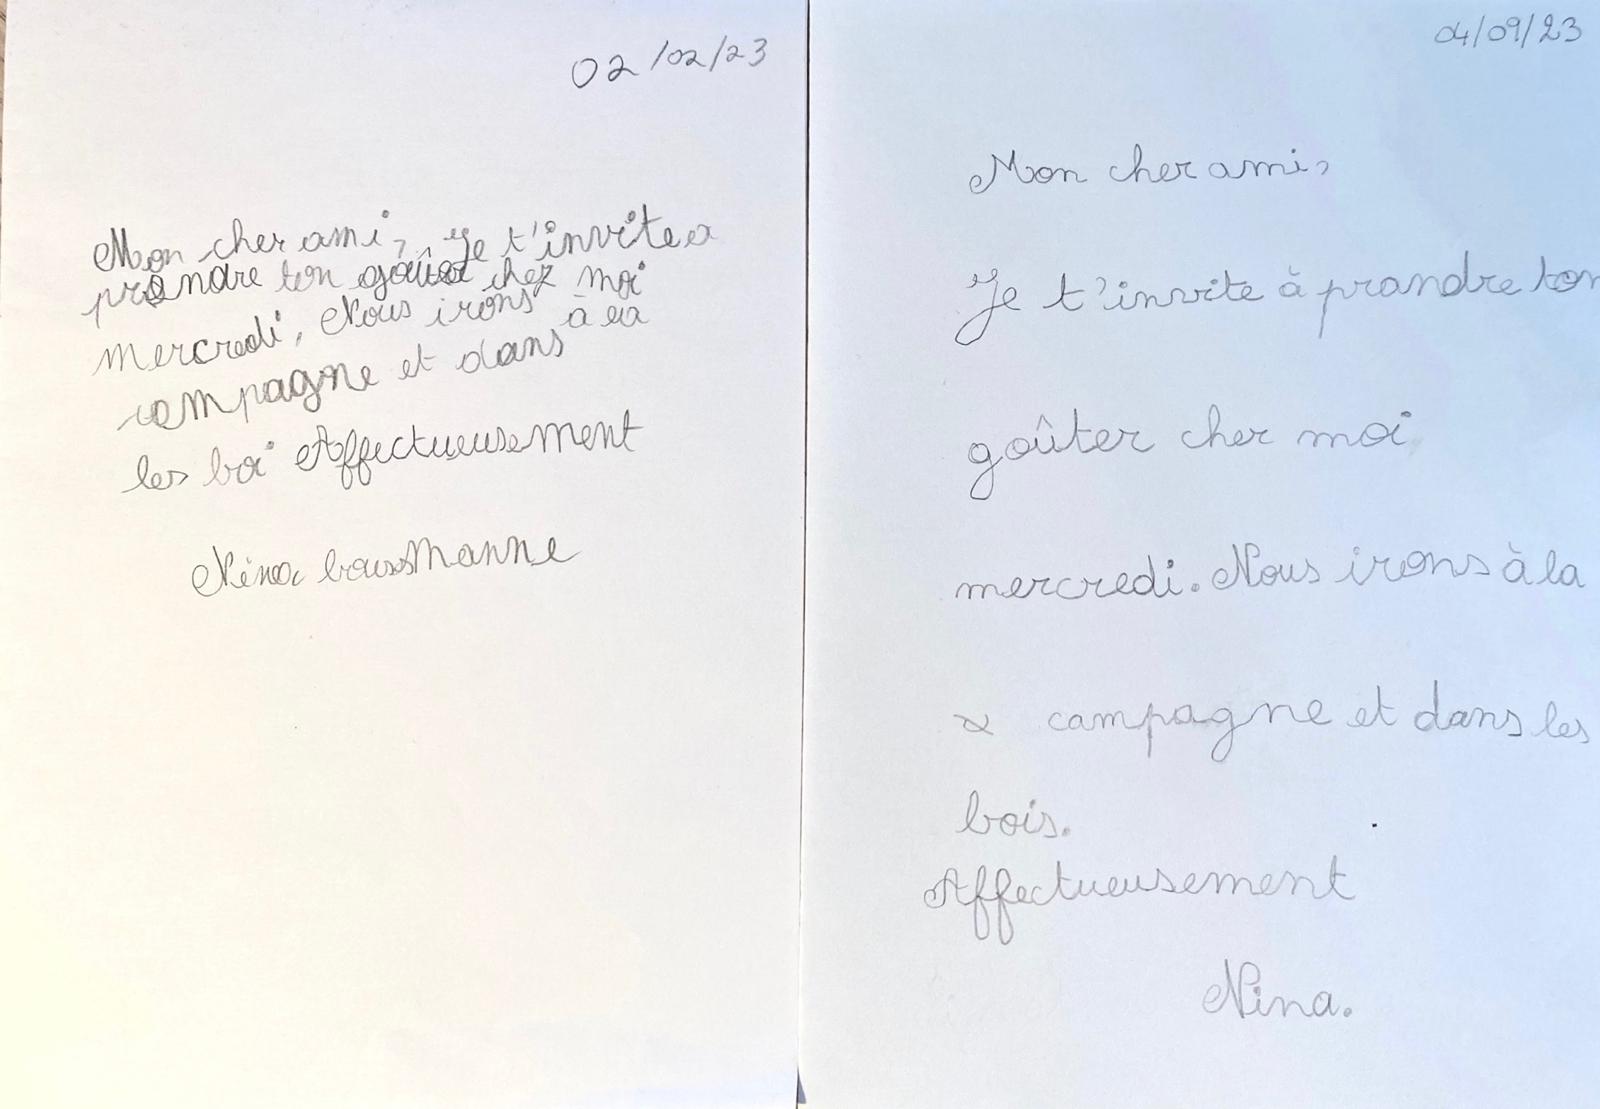 02/02/23
Mon cher ami, Je t'invite a
prendre ton goûter chez moi
mercredi, Nous irons à la
campagne et dans
les boi Affectueusement
Nina
04/09/23
Mon cher ami,
Je t'invite à prandre ton
goûter cher moi
mercredi. Nous irons à la
campagne et dans les
bois.
Affectueusement
Nina.